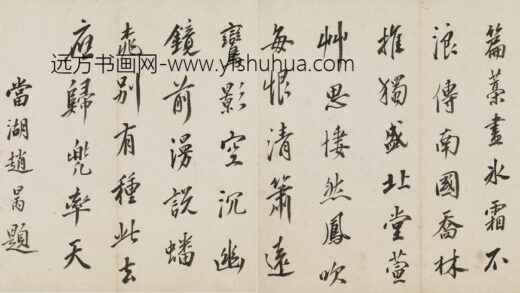 篇藁畫氷霜不
浪傳南國喬林
推獨盛北堂萱
艸思悽然鳳吹
每恨清簫遠
鸞影空沉幽
鏡前漫說蟠
桃別有種此去
應歸兜率天
當湖趙題
远方书画网-www.yishuhua.com